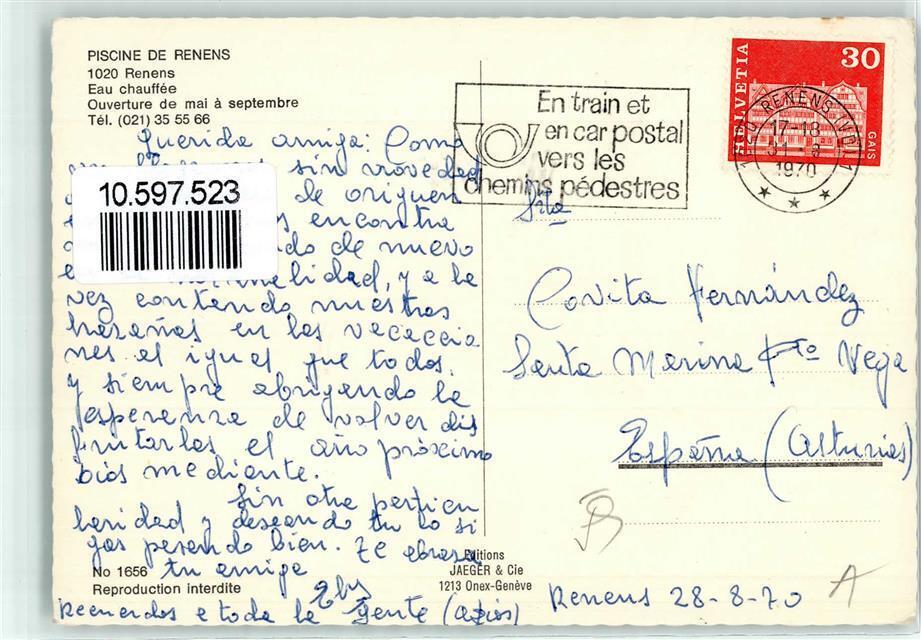 PISCINE DE RENENS
1020 Renens
Eau chauffée
Ouverture de mai à septembre
Tél. (021) 35 55 66
Querida amiga: Como
sin novedad
10.597.523
de origuen
encontra
de nuevo
y a la
vez contando nuestras
hazañas en las vacaccio
nes al igual que todos.
y siempre abrigando la
esperanza de volver dis
frutarlas el año próximo
Dios mediante.
Sin otra particu
laridad y deseando tu lo si
gas pasando bien. Te abraza
tu amiga
Recuerdos a toda la gente (adios)
No 1656
Reproduction interdite
Editions
JAEGER & Cie
1213 Onex-Genève
En train et
en car postal
vers les
chemins pédestres
HELVETIA
30
GAIS
1020 RENENS (VD) 1
17-18
1970
Srta
Covita Fernández
Santa Marina Pto Vega
España (Asturias)
Renens 28-8-70
A